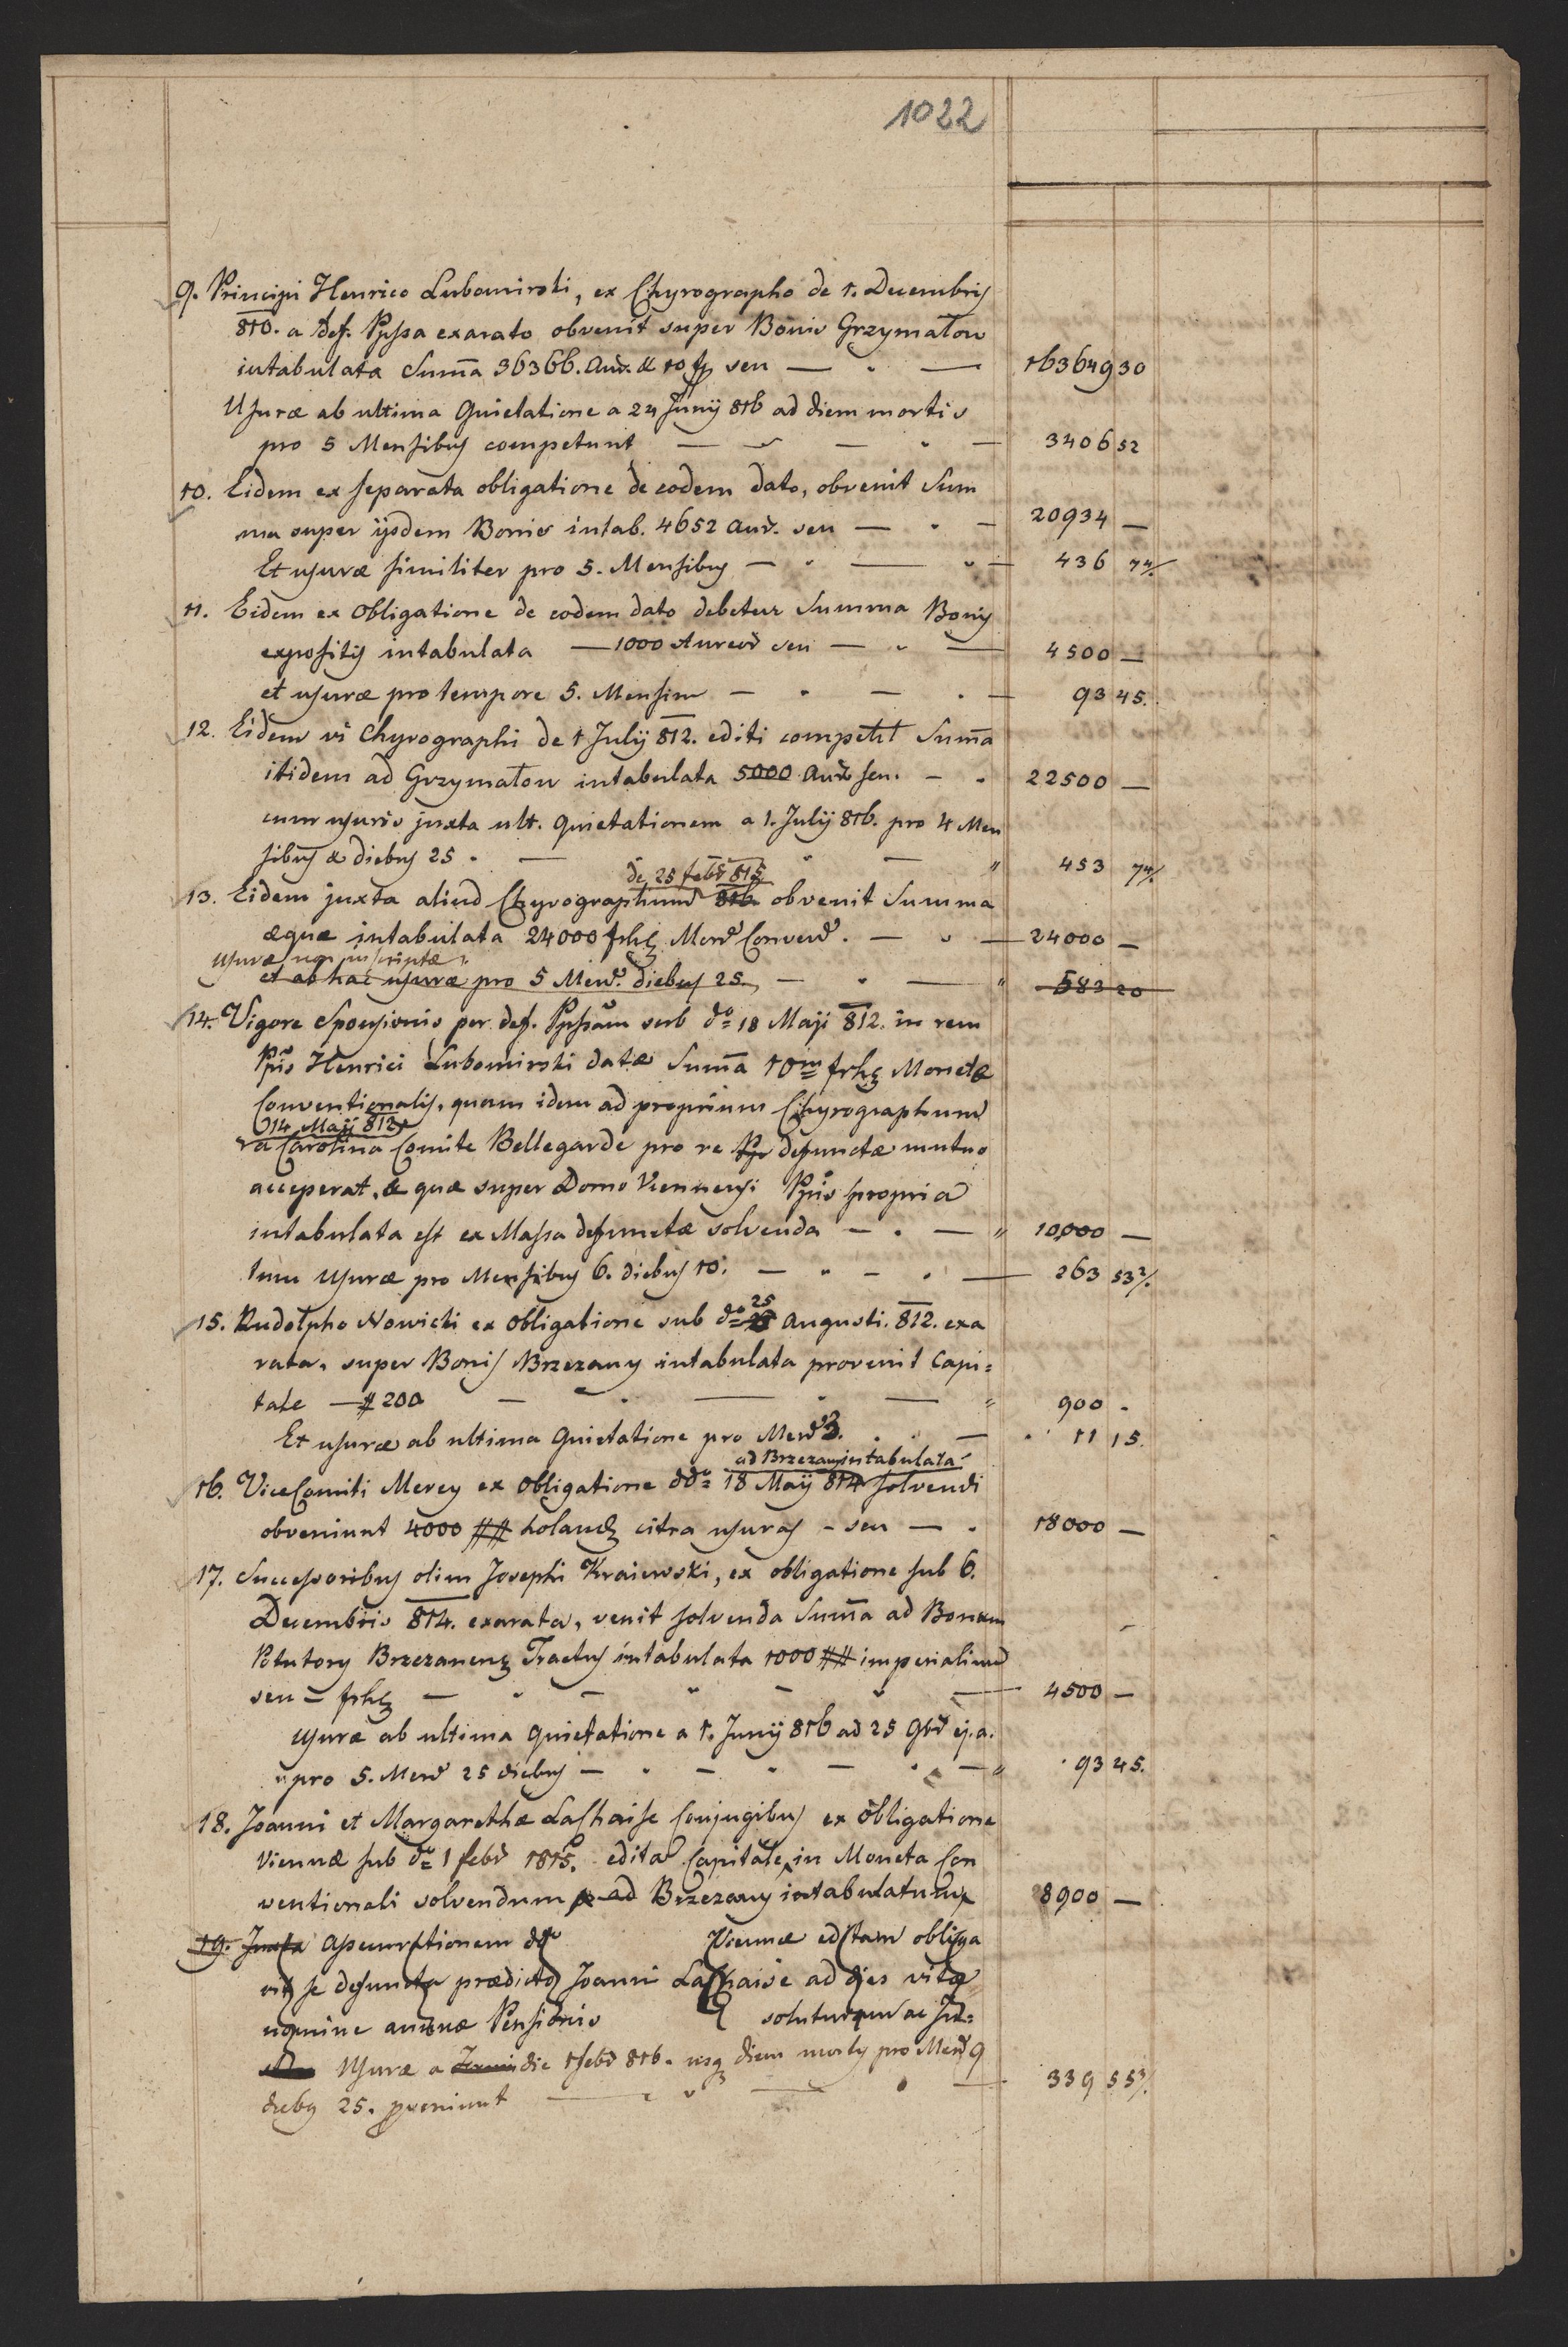 1022
9. Principi Henrico Lubomirski, ex Chyrographo de 1. Decembris
810. a def. Ppssa exarato obvenit super Bonis Grzymałow
intabulata Summa 36366. Aur. & 10 fp seu — . — 163649 30
Usuræ ab ultima Quietatione a 24 Junij 816 ad diem mortis
pro 5 Mensibus competunt — — . — 3406 52
10. Eidem ex separata obligatione de eodem dato, obvenit Sum
ma super ijsdem Bonis intab. 4652 Aur. seu — . — 20934 —
Et usuræ similiter pro 5. Mensibus — . — . — 436 7 4/.
11. Eidem ex Obligatione de eodem dato debetur Summa Bonis
expositis intabulata — 1000 Aureor seu — . — 4500 —
et usuræ pro tempore 5. Mensium — . — . — 93 45.
12. Eidem vi Chyrographi de 1 Julij 812. editi competit Summa
itidem ad Grzymałow intabulata 5000 Aur seu. — . 22500 —
cum usuris juxta ult. Quietationem a 1. Julij 816. pro 4 Men
sibus & diebus 25 . — . — " 453 7 4/.
de 25 febr 815
13. Eidem juxta aliud Chyrographum 816 obvenit Summa
æque intabulata 24000 frhs Mon Conven. — . — 24000 —
Usuræ non inscriptæ
et ab hac usuræ pro 5 Men. diebus 25. — . — " 583 20
14. Vigore Sponsionis per def. Ppssam sub do 18 Maji 812. in rem
Ppis Henrici Lubomirski datæ Summa 10m frhs Monetæ
Conventionalis, quam idem ad proprium Chyrographum
14 Maji 812
a Carolina Comite Bellegarde pro re Pp defunctæ mutuo
acceperat, & quæ super Domo Viennensi Ppis propria
intabulata est ex Massa defunctæ solvenda — . — " 10,000 —
Cum Usuræ pro Mensibus 6. diebus 10. — . — . — 263 53 2/.
25
15. Rudolpho Nowicki ex Obligatione sub do Augusti. 812. exa
rata, super Bonis Brzezany intabulata provenit Capi=
tale — # 200 — . — . — " 900 .
Et usuræ ab ultima Quietatione pro Men 3. . . — . 11 15.
ad Brzezany intabulata
16. ViceComiti Merey ex Obligatione ddo 18 Maij 814 solvendi
obveniunt 4000 ## holand citra usuras - seu — . 18000 —
17. Successoribus olim Josephi Kraiewski, ex obligatione sub 6.
Decembris 814. exarata, venit solvenda Summa ad Bonum
Potutory Brzezanens Tractus intabulata 1000 ## imperialium
seu = frhs — . — " — " — 4500 —
Usuræ ab ultima Quietatione a 1. Junij 816 ad 25 9br ej. a.
pro 5. Men 25 diebus — . — . — . — " . 93 45.
18. Joanni et Margarethæ LaChaise Conjugibus ex Obligatione
Viennæ sub do 1 febr 1815. edita Capitale, in Moneta Con
ventionali solvendum ad Brzezany intabulatum 8900 —
19. Juxta Assecurationem ddo Viennæ editam obliga
vit se defuncta prædicto Joanni LaChaise ad dies vitæ
nomine annuæ Pensionis soluturam ac
Usuræ a die 1 febr 816. usq diem mortis pro Men 9
diebus 25. proveniunt — . — . — 339 55 3/.